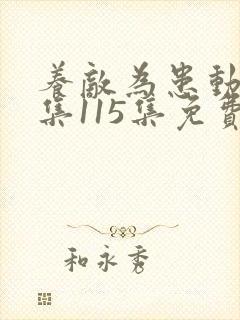 養敵為患動
集115集免費
和永秀